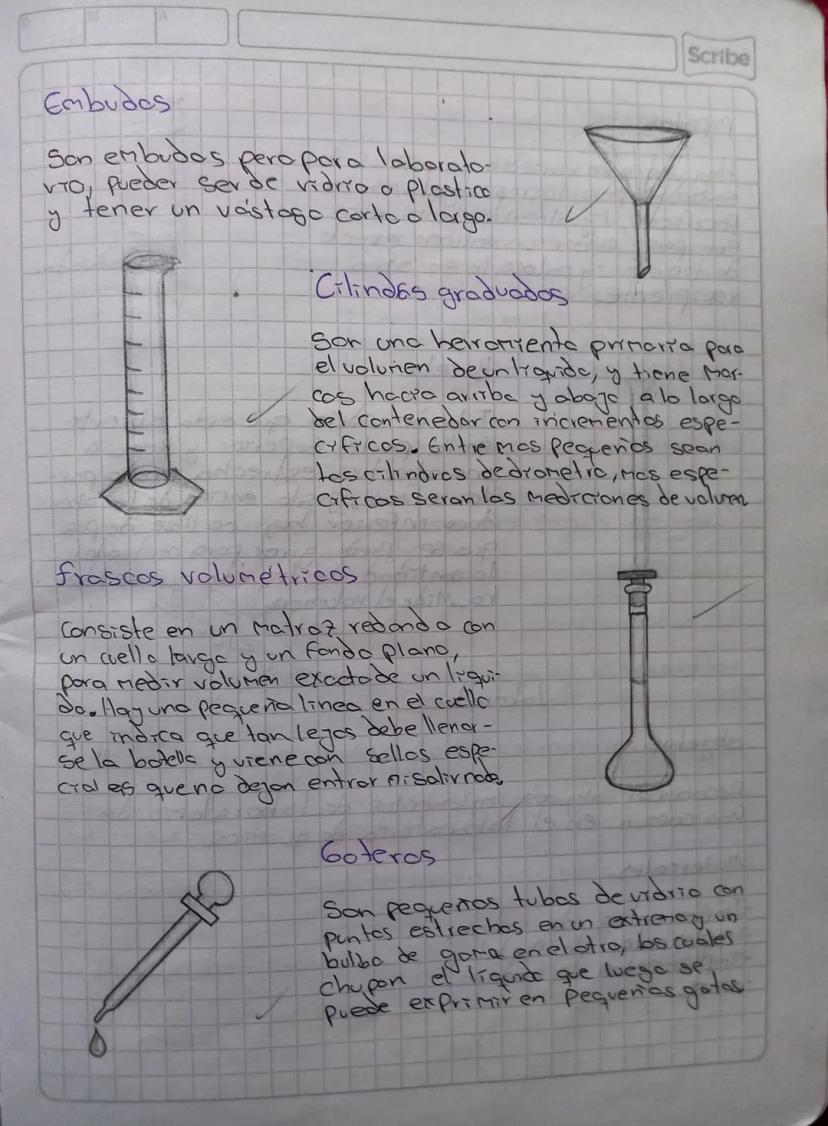 Scribe
Embudos
Son embudos pero para laborato-
rio, pueder ser de vidrio o plastico
y tener un vástago corto o largo.
Cilindros graduados
Son una herramienta primaria para
el volumen de un liquido, y tiene mar-
cas hacia arriba y abajo a lo largo
del contenedor con incrementos espe-
cificos. Entre mas pequeños sean
los cilindros de diametro, mas espe-
cificas seran las mediciones de volumen
frascos volumétricos
Consiste en un matraz redondo con
un cuello largo y un fondo plano,
para medir volumen exacto de un liqui-
do. Hay una pequeña linea en el cuello
que indica que tan lejos debe llenar-
se la botella y viene con sellos espe-
ciales que no dejan entrar ni salir nada
Goteros
Son pequeños tubos de vidrio con
puntas estrechas en un extremo y un
bulbo de goma en el otro, los cuales
chupan el liquido que luego se
puede exprimir en pequeñas gotas